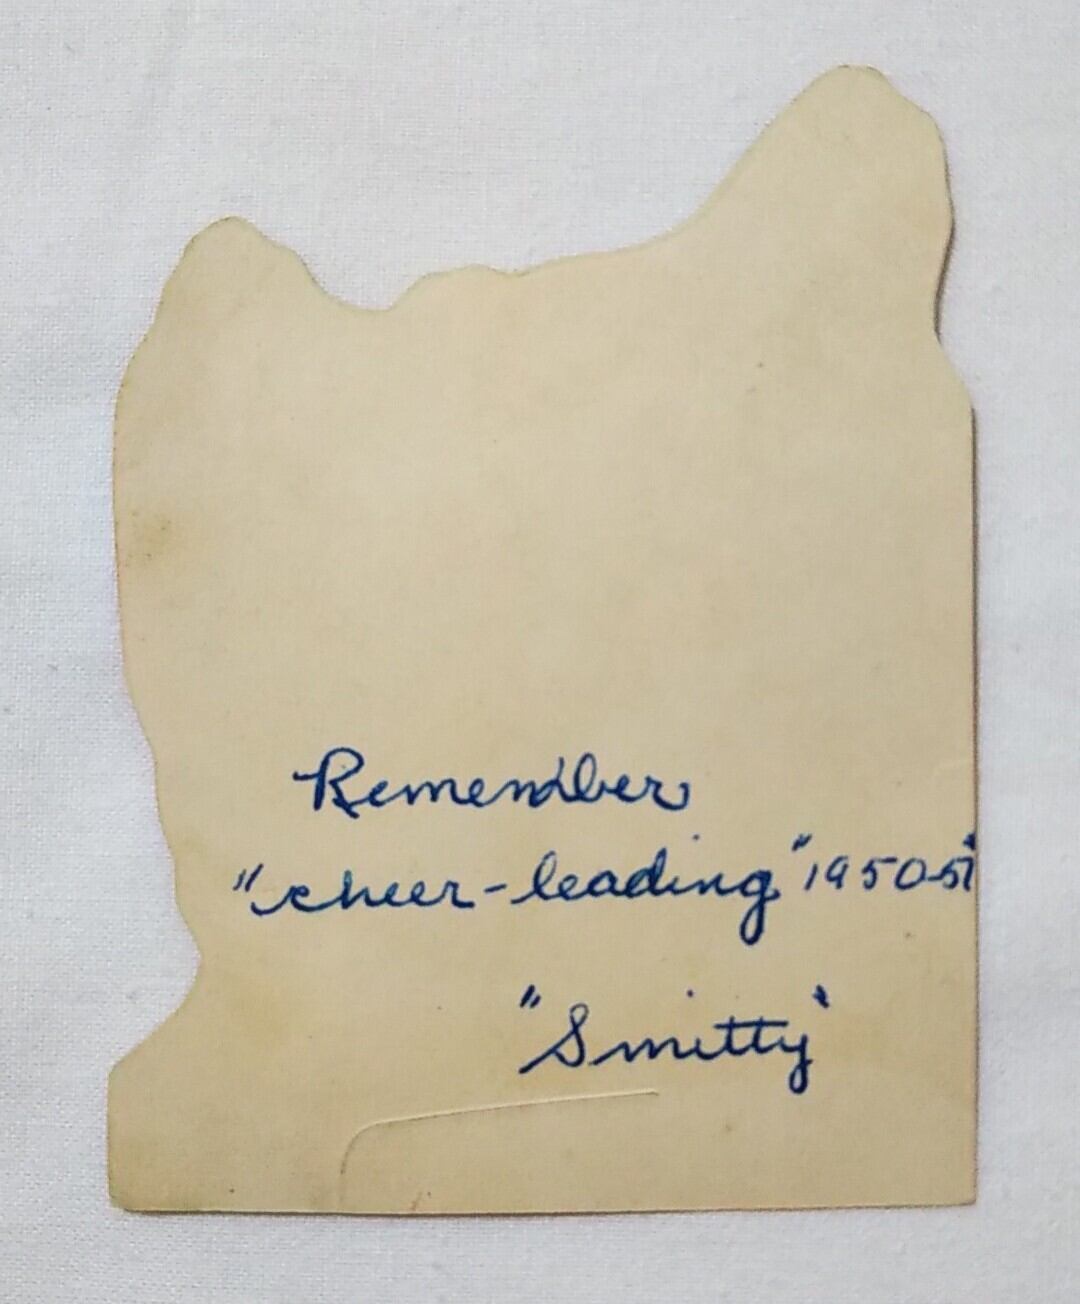 Remember
"cheer-leading" 1950-51
"Smitty"